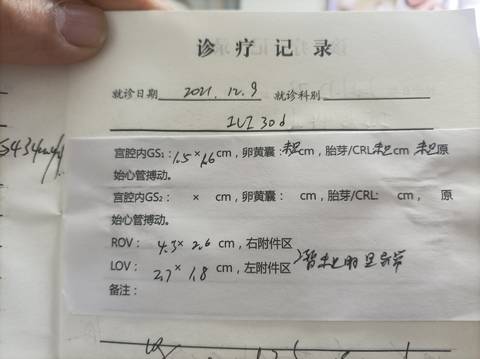 诊疗记录
就诊日期 2021.12.9 就诊科别
IUI 30d
宫腔内GS₁：1.5×1.6 cm，卵黄囊：未见cm，胎芽/CRL未见cm 未见原
始心管搏动。
宫腔内GS₂： × cm，卵黄囊： cm，胎芽/CRL: cm， 原
始心管搏动。
ROV： 4.3× 2.6 cm，右附件区
LOV： 2.7× 1.8 cm，左附件区 暂未见明显异常
备注：